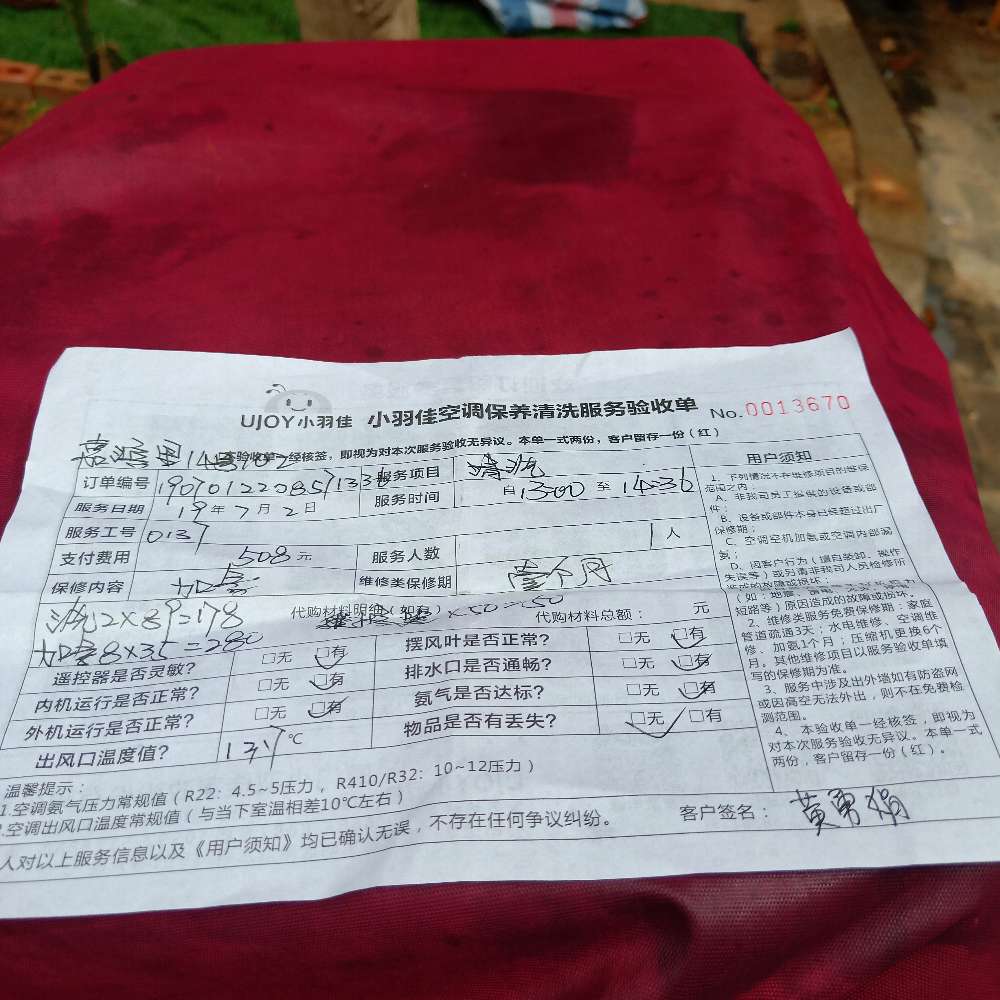 UJOY小羽佳 小羽佳空调保养清洗服务验收单 No.0013670
本验收单一经核签，即视为对本次服务验收无异议。本单一式两份，客户留存一份（红）
订单编号 服务项目 清洗
服务日期 19年7月2日 服务时间 自13:00至14:36
服务工号 0137
支付费用 508元 服务人数 1人
保修内容 加氨 维修类保修期 壹个月
洗2×89=178 代购材料明细 ×50=50 代购材料总额： 元
加氨8×35=280
遥控器是否灵敏？ □无 □有 摆风叶是否正常？ □无 □有
内机运行是否正常？ □无 □有 排水口是否通畅？ □无 □有
外机运行是否正常？ □无 □有 氨气是否达标？ □无 □有
出风口温度值？ ℃ 物品是否有丢失？ □无 □有
用户须知
1、下列情况不在维修项目的维保
范围之内：
A、非我司员工提供的设备或部
件；
B、设备或部件本身已经超过出厂
保修期；
C、空调空机加氨或空调内部漏
氨；
D、因客户行为（擅自装卸、操作
失误等）或另请非我司人员检修所
造成的故障或损坏；
短路等）原因造成的故障或损坏。
2、维修类服务免费保修期：家庭
管道疏通3天；水电维修、空调维
修、加氨1个月；压缩机更换6个
月。其他维修项目以服务验收单填
写的保修期为准。
3、服务中涉及出外墙如有防盗网
或因高空无法外出，则不在免费检
测范围。
4、本验收单一经核签，即视为
对本次服务验收无异议。本单一式
两份，客户留存一份（红）。
温馨提示：
1.空调氨气压力常规值（R22：4.5~5压力，R410/R32：10~12压力）
2.空调出风口温度常规值（与当下室温相差10℃左右）
人对以上服务信息以及《用户须知》均已确认无误，不存在任何争议纠纷。 客户签名：黄勇娟